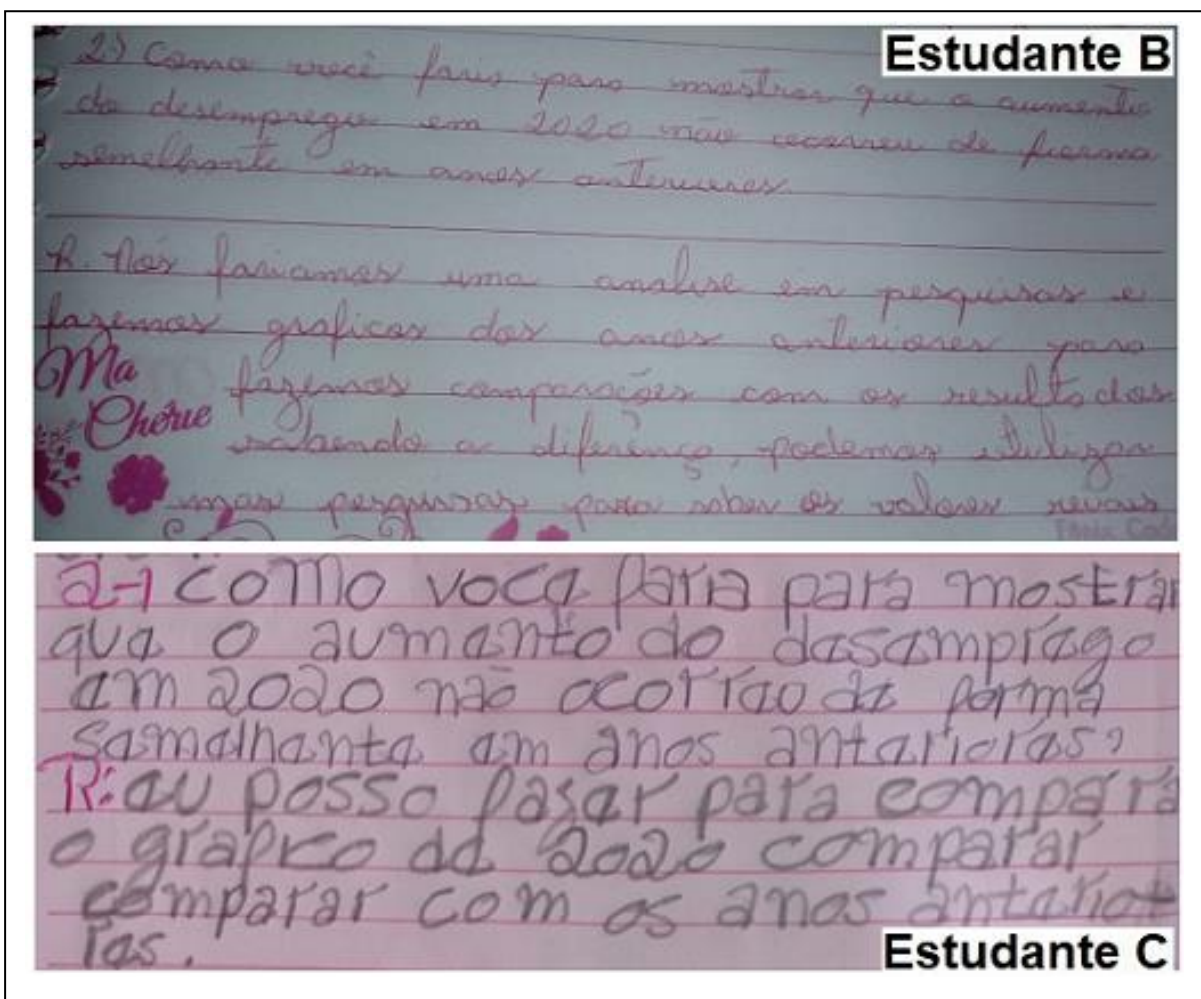 Estudante B
2) Como você faria para mostrar que o aumento
do desemprego em 2020 não ocorreu de forma
semelhante em anos anteriores
R. Nós fariamos uma analise em pesquisas e
fazemos graficos dos anos anteriores para
Ma
Chérie
fazemos comparações com os resultados
sabendo a diferença, podemos utilizar
pesquisas para saber os valores
2-) como você faria para mostrar
que o aumento do desemprego
em 2020 não ocorreo de forma
semelhante em anos anteriores?
R: eu posso para compara
o grafico de 2020 comparar
comparar com os anos anterior
ras.
Estudante C